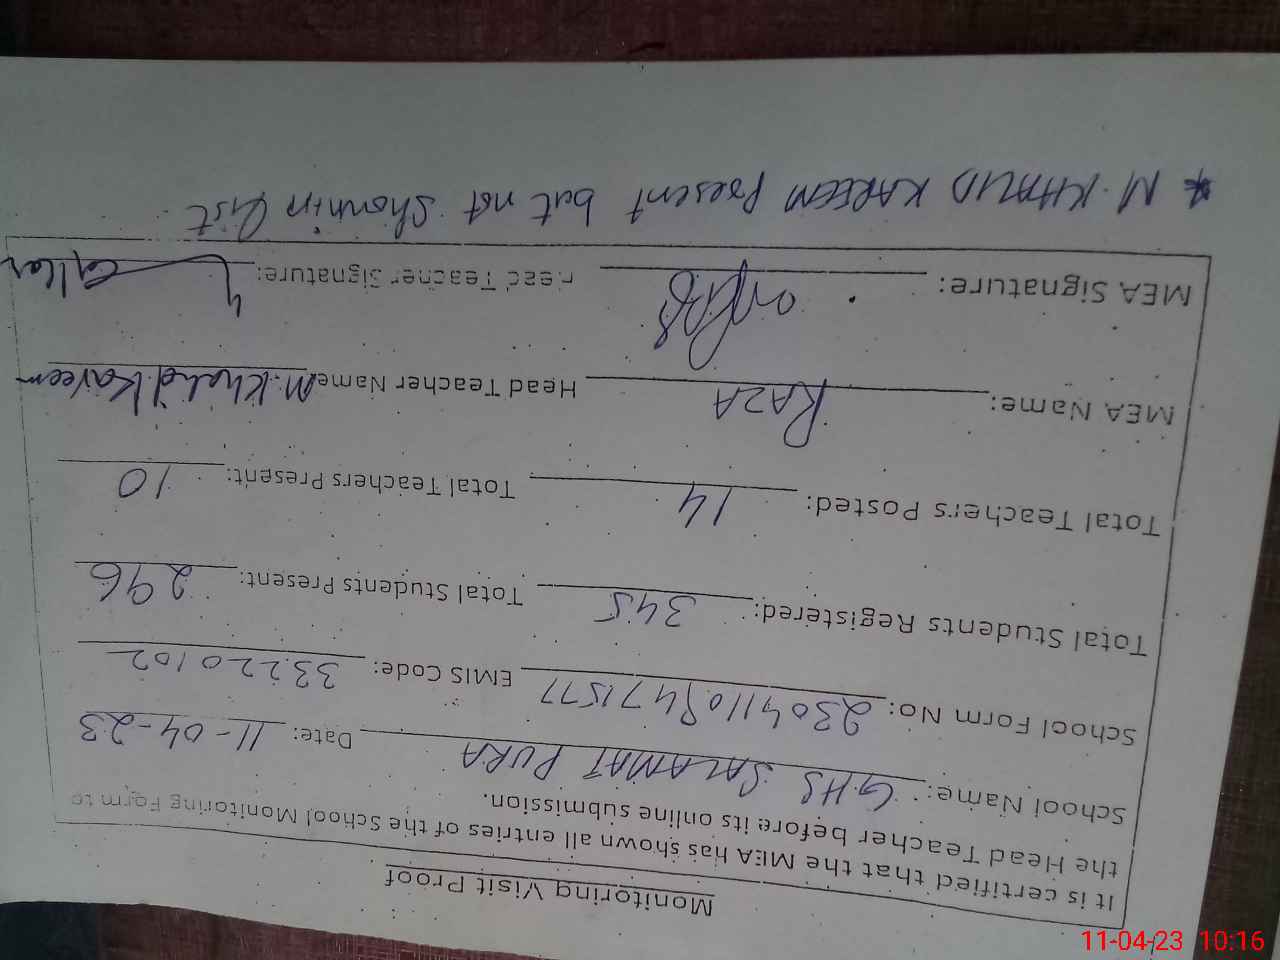 Monitoring Visit Proof
It is certified that the MEA has shown all entries of the School Monitoring Form to
the Head Teacher before its online submission.
School Name: G.HS SALAMAT PURA Date: 11-04-23
School Form No: 23041108471577 EMIS Code: 33220102
Total Students Registered: 345 Total Students Present: 296
Total Teachers Posted: 14 Total Teachers Present: 10
MEA Name: RAZA Head Teacher Name M. Khalid Kareem
MEA Signature: Head Teacher Signature:
* M. KHALID KAREEM Present but not shown in list
11-04-23 10:16